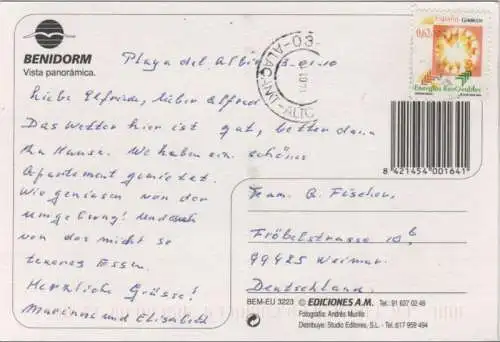 BENIDORM
Vista panorámica.
Playa del Albir 3-01-10
España CORREOS
0,62
Energías Renovables
-03-
ALACANT-ALIC
Liebe Elfriede, lieber Alfred
Das Wetter hier ist gut, better dann
zu Hause. Wir haben ein schönes
Apartement gemietet.
Wie geniesen von der
umgebung! Und auch
von das nicht so
teueres Essen.
Herzliche Grüsse!
Marianne und Elisabeth
8 421454 001641
Fam. A. Fischer,
Fröbelstrasse 10 b,
99425 Weimar.
Deutschland.
BEM-EU 3223 © EDICIONES A.M. Tel.: 91 637 02 48
Fotografía: Andrés Murillo
Distribuye: Studio Editores, S.L. - Tel. 617 959 494